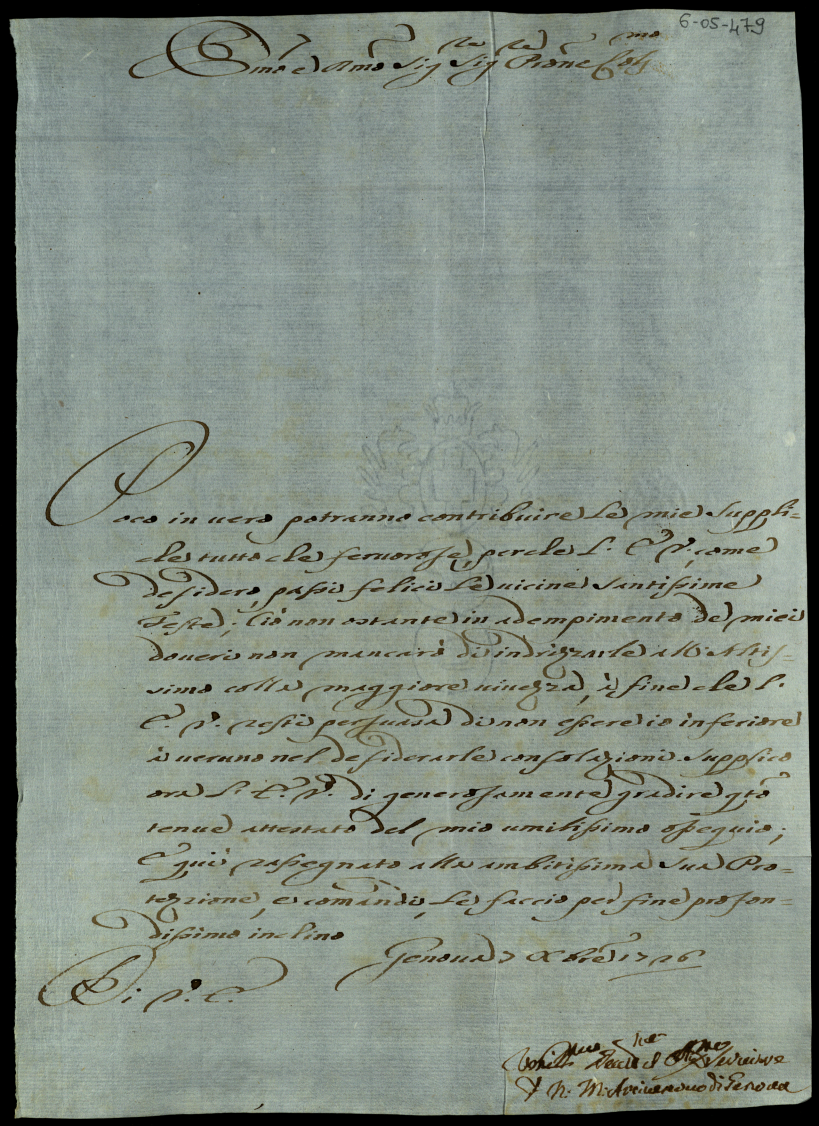 6-05-479
Em̃o e Rm̃o Sig.re Sig.re Prone Col.mo
Poco in uero potranno contribuire le mie suppli=
che tutto che feruorose, perche l' E. V., come
desidero, passi felici le uicine Santissime
Feste; Ciò non ostante in adempimento de miei
doueri non mancarò di indrizzarle all' Altis-
simo colla maggiore uiuezza, à fine che l'
E. V. resti persuasa di non essere io inferiore
à ueruno nel desiderarle consolazioni. Supplico
ora l' E. V. di generosamente gradire q̃to
tenue attestato del mio umilissimo ossequio;
E qui rassegnato alla ambitissima sua Pro-
tezzione, e comandi, le faccio per fine profon-
dissimo inchino
Genoua 7 Xbre 1726
Di V. E.
Vmill.mo Seru.re
N. M. Arciuescouo di Genoua